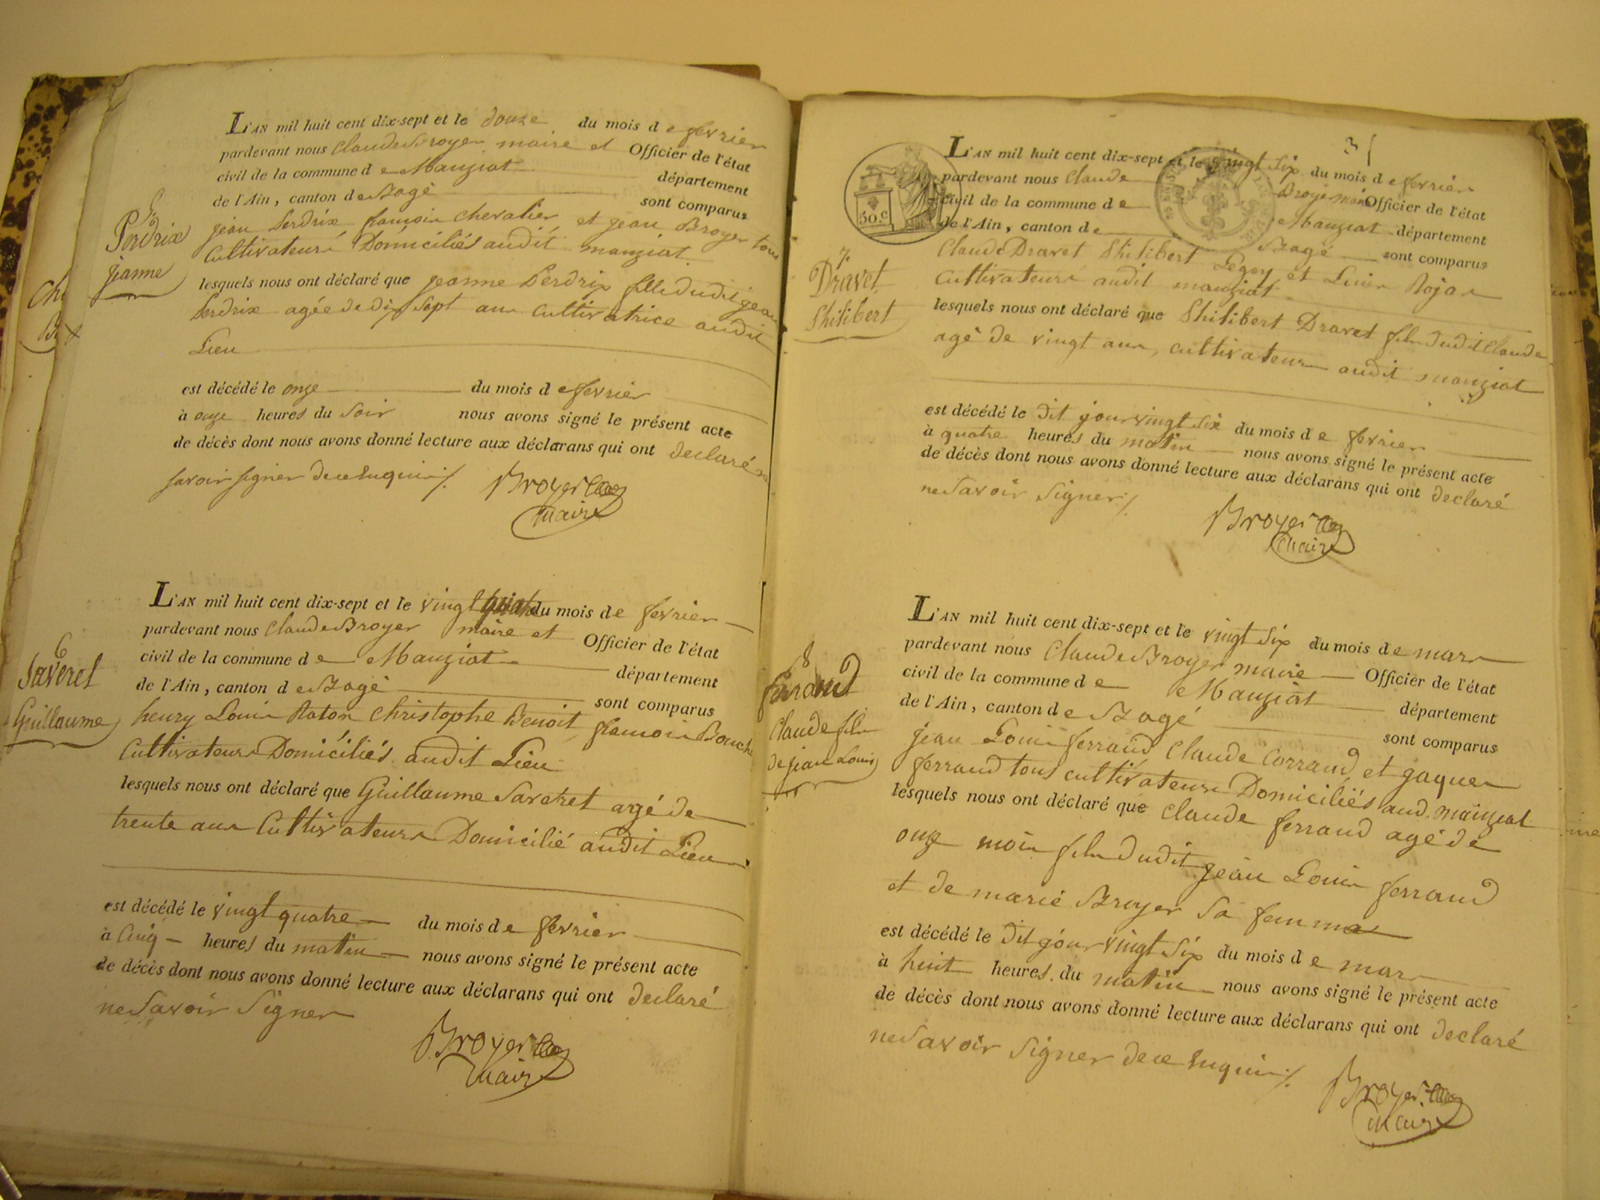 5
Perdrix
jeanne
L'AN mil huit cent dix-sept et le douze du mois de fevrier
pardevant nous Claude Broyer maire et Officier de l'état
civil de la commune de Manziat département
de l'Ain, canton de Bagé sont comparus
jean Perdrix françois chevalier et jean Broyer tous
Cultivateurs Domiciliés audit manziat
lesquels nous ont déclaré que jeanne Perdrix fille dudit jean
Perdrix agée de dix sept ans Cultivatrice audit
Lieu
est décédé le onze du mois de fevrier
à onze heures du soir nous avons signé le présent acte
de décès dont nous avons donné lecture aux déclarans qui ont declaré ne
savoir signer de ce enquis
Broyer
Maire
6
Saveret
Guillaume
L'AN mil huit cent dix-sept et le vingt quatre du mois de fevrier
pardevant nous Claude Broyer maire et Officier de l'état
civil de la commune de Manziat département
de l'Ain, canton de Bagé sont comparus
henry Louis Raton Christophe Benoit françois Bouche
Cultivateurs Domiciliés audit Lieu
lesquels nous ont déclaré que Guillaume Saveret agé de
trente ans Cultivateur Domicilié audit Lieu
est décédé le vingt quatre du mois de fevrier
à Cinq heures du matin nous avons signé le présent acte
de décès dont nous avons donné lecture aux déclarans qui ont declaré
ne Savoir Signer
Broyer
Maire
3
50 c
7
Dravet
Philibert
L'AN mil huit cent dix-sept et le vingt six du mois de fevrier
pardevant nous Claude Broyer maire Officier de l'état
civil de la commune de Manziat département
de l'Ain, canton de Bagé sont comparus
Claude Dravet Philibert et Louis
Cultivateurs audit manziat
lesquels nous ont déclaré que Philibert Dravet fils dudit Claude
agé de vingt ans, cultivateur audit manziat
est décédé le dit jour vingt six du mois de fevrier
à quatre heures du matin nous avons signé le présent acte
de décès dont nous avons donné lecture aux déclarans qui ont declaré
ne Savoir Signer
Broyer
Maire
8
ferrand
Claude fils
de jean Louis
L'AN mil huit cent dix-sept et le vingt six du mois de mars
pardevant nous Claude Broyer maire Officier de l'état
civil de la commune de Manziat département
de l'Ain, canton de Bagé sont comparus
jean Louis ferrand Claude Corrand et jaques
ferrand tous cultivateurs Domiciliés aud. manziat
lesquels nous ont déclaré que Claude ferrand agé de
onze mois fils dudit jean Louis ferrand
et de marie Broyer Sa femme
est décédé le dit jour vingt six du mois de mars
à huit heures du matin nous avons signé le présent acte
de décès dont nous avons donné lecture aux déclarans qui ont declaré
ne Savoir Signer de ce enquis
Broyer
Maire